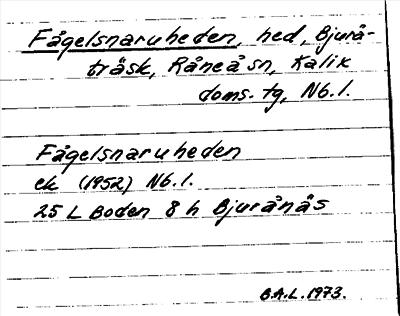 Fågelsnaruheden, hed, Bjurå-
träsk, Råneå sn, Kalix
doms. tg, Nb. l.
Fågelsnaruheden
ek (1952) Nb. l.
25 L Boden 8 h Bjurånäs
B.A.L. 1973.